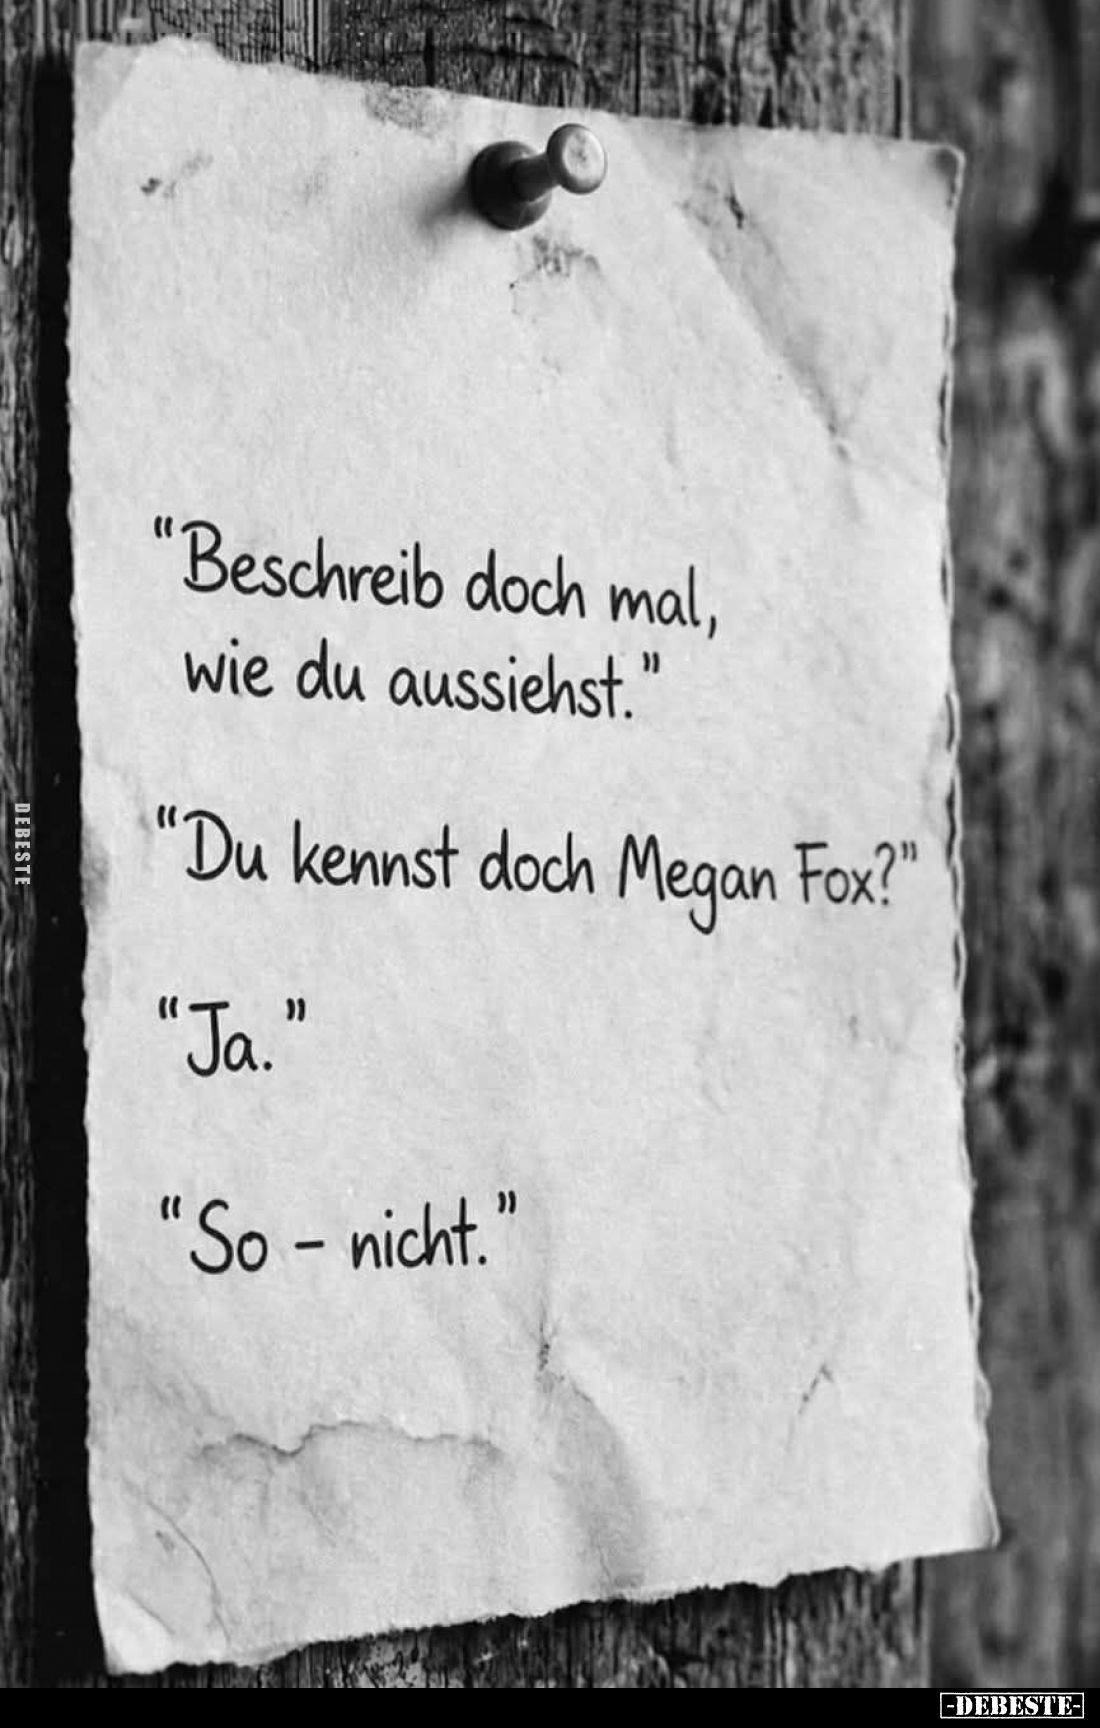 "Beschreib doch mal,
wie du aussiehst."
"Du kennst doch Megan Fox?"
"Ja."
"So - nicht."
DEBESTE
-DEBESTE-